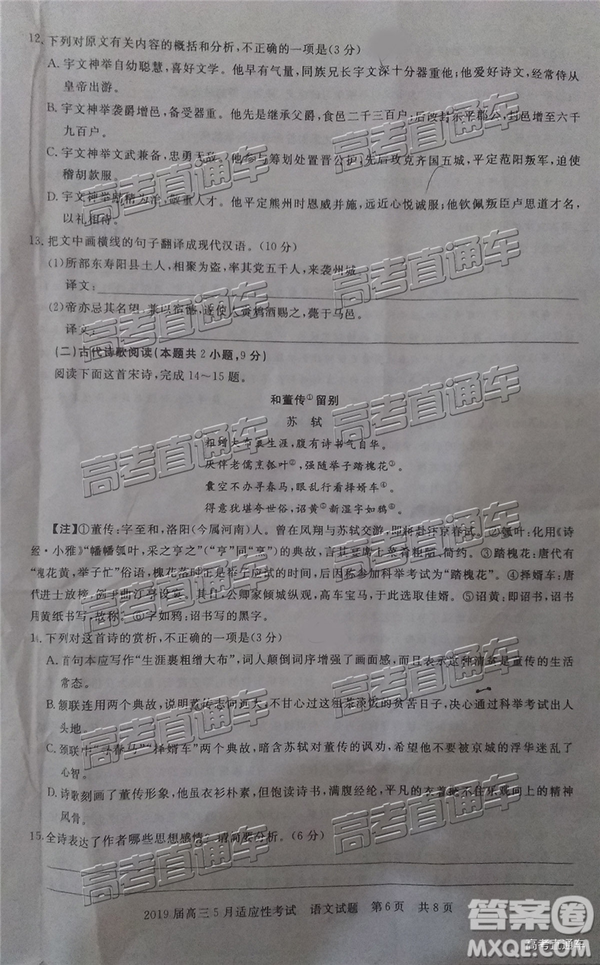 12. 下列对原文有关内容的概括和分析，不正确的一项是(3分)
A. 宇文神举自幼聪慧，喜好文学。他早有气量，同族兄长宇文深十分器重他；他爱好诗文，曾经与
皇帝出游。
B. 宇文神举袭爵增邑，备受器重。他先是继承父爵，食邑二千三百户；后改封乐平郡公，封邑增至六千
九百户。
C. 宇文神举文武兼备，忠勇无敌。他参与筹划处置晋公护；先后攻克齐国五城，平定范阳叛军，迫使
稽胡款服。
D. 宇文神举 为 ，平定熊州时恩威并施，远近心悦诚服；他钦佩叛臣卢思道才大，
以礼相待。
13. 把文中画横线的句子翻译成现代汉语。(10分)
(1)所部东寿阳县土人，相聚为盗，率其党五千人，来袭州城。
译文：
(2)帝亦忌其名望，兼以宿憾， 赍鸩酒赐之，薨于马邑。
译文：
(二)古代诗歌阅读(本题共2小题，9分)
阅读下面这首宋诗，完成14～15题。
和董传①留别
苏轼
粗缯大布裹生涯，腹有诗书气自华。
厌伴老儒烹瓠叶②，强随举子踏槐花③。
囊空不办寻春马，眼乱行看择婿车④。
得意犹堪夸世俗，诏黄⑤新湿字如鸦。
【注】①董传：字至和，洛阳(今属河南)人。曾在凤翔与苏轼交游，即将赴汴京春试。②瓠叶：化用《诗
经·小雅》“幡幡瓠叶，采之亨之”(“亨”同“烹”)的典故，言其席上菜肴粗陋、简约。③踏槐花：唐代有
“槐花黄，举子忙”俗语，槐花落时正是举子应试的时间，后因称参加科举考试为“踏槐花”。④择婿车：唐
代进士放榜，例于曲江亭设宴，其日公卿家倾城纵观，高车宝马，于此选取佳婿。⑤诏黄：即诏书，诏书
用黄纸书写，故称。字如鸦：诏书写的黑字。
14. 下列对这首诗的赏析，不正确的一项是(3分)
A. 首句本应写作“生涯裹粗缯大布”，词人颠倒词序增强了画面感，而且表示这种清贫是董传的生活
常态。
B. 颔联连用两个典故，说明董传志同道大，不愿过这粗茶淡饭的贫苦日子，决心通过科举考试出人
头地。
C. 颈联中“寻春马”“择婿车”两个典故，暗含苏轼对董传的讽劝，希望他不要被京城的浮华迷乱了
心智。
D. 诗歌刻画了董传形象，他虽衣衫朴素，但饱读诗书，满腹经纶，平凡的衣着又掩盖不住向上的精神
风骨。
15. 全诗表达了作者哪些思想感情？请简要分析。(6分)
2019届高三5月适应性考试 语文试题 第6页 共8页
高考直通车
答案圈
MXQE.COM
高考直通车